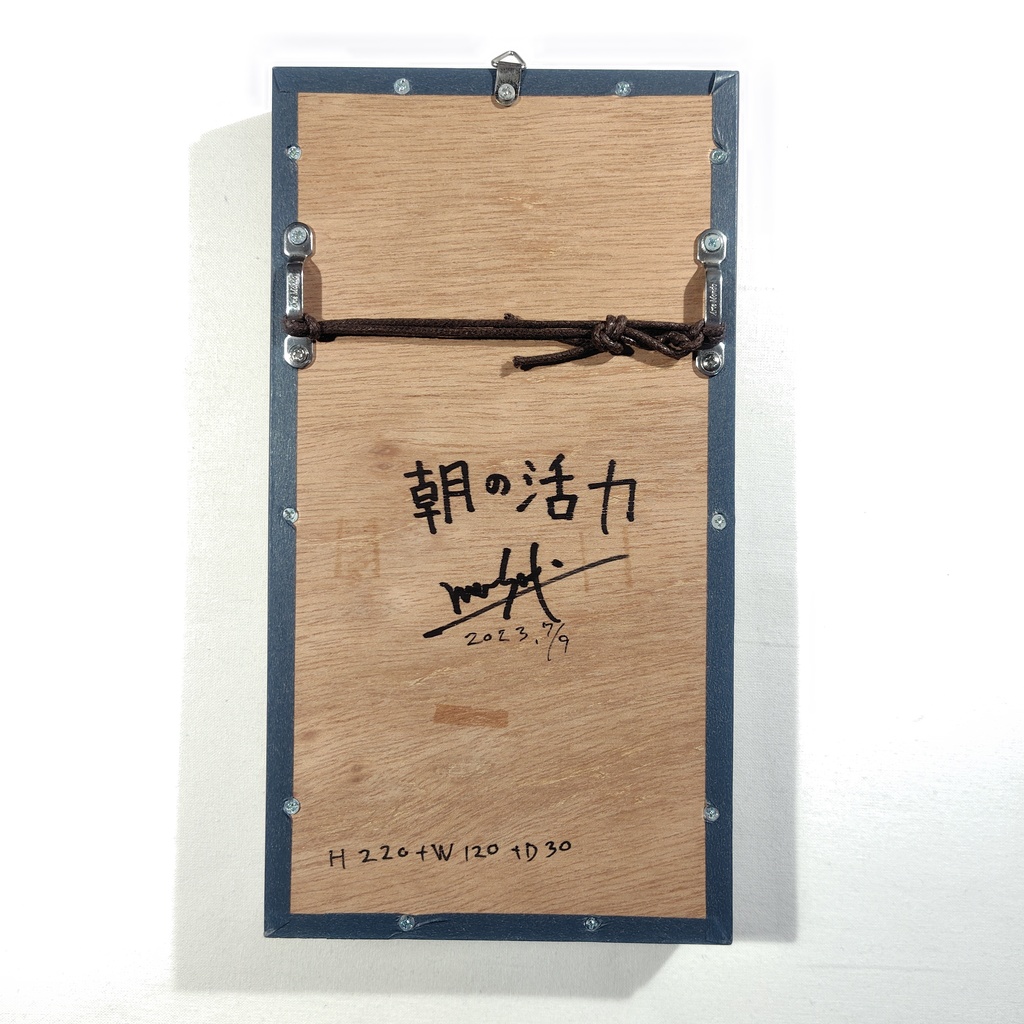 朝の活力
2023.7/9
H 220+W 120+D 30